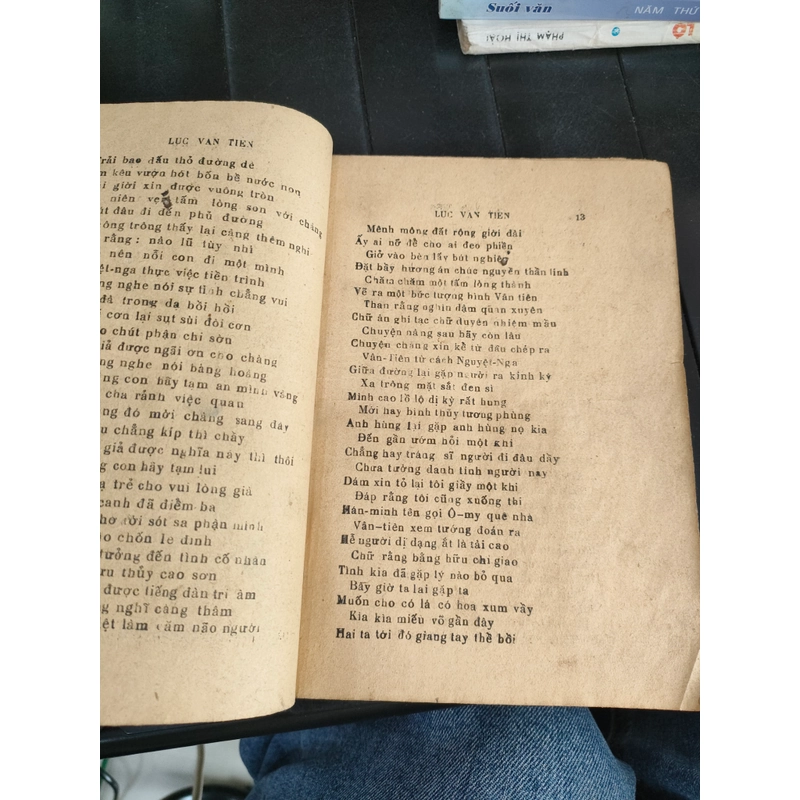 Suối văn
NĂM THỨ
PHẠM THỊ HOÀI
LỤC VAN TIEN
Trải bao dấu thỏ đường dê
kêu vượn hót bốn bề nước non
giời xin được vuông tròn
niên vẹn tấm lòng son với chàng
đâu đi đến phủ đường
ông trông thấy lại càng thêm nghi
rằng: nào lũ tùy nhi
nên nỗi con đi một mình
ệt-nga thực việc tiền trình
ng nghe nói sự tình chẳng vui
đả trong dạ bồi hồi
cơn lại sụt sùi đòi cơn
o chút phận chi sờn
iả được ngãi ơn cho chàng
ng nghe nói bàng hoàng
ng con hãy tạm an mình vàng
cha rảnh việc quan
ng đó mời chàng sang đây
u chẳng kíp thì chầy
giả được nghĩa này thì thôi
g con hãy tạm lui
ạ trẻ cho vui lòng già
canh đã điểm ba
hơ rời sót sa phận mình
o chốn le đình
ưởng đến tình cố nhân
ưu thủy cao sơn
được tiếng đàn tri âm
g nghĩ càng thầm
ệt làm cảm não người
LỤC VAN TIEN 13
Mênh mông đất rộng giời dài
Ấy ai nỡ để cho ai đeo phiền
Giở vào bèn lấy bút nghiên
Đặt bầy hương án chúc nguyền thần linh
Chăm chăm một tấm lòng thành
Vẽ ra một bức tượng hình Vân tiên
Than rằng nghìn dậm quan xuyên
Chữ ân ghi tạc chữ duyên nhiệm mầu
Chuyện nàng sau hãy còn lâu
Chuyện chàng xin kể từ đầu chép ra
Vân-Tiên từ cách Nguyệt-Nga
Giữa đường lại gặp người ra kinh kỳ
Xa trông mặt sắt đen sì
Mình cao lồ lộ dị kỳ rất hung
Mới hay bình thủy tương phùng
Anh hùng lại gặp anh hùng nọ kia
Đến gần ướm hỏi một khi
Chẳng hay tràng sĩ người đi đâu dầy
Chưa tường danh tính người nay
Dám xin tỏ lại tôi giầy một khi
Đáp rằng tôi cũng xuống thi
Hán-minh tên gọi Ô-my quê nhà
Vân-tiên xem tướng đoán ra
Hễ người dị dạng ắt là tài cao
Chữ rằng bằng hữu chi giao
Tình kia đã gặp lý nào bỏ qua
Bấy giờ ta lại gặp ta
Muốn cho có lá có hoa xum vầy
Kia kìa miếu võ gần đây
Hai ta tới đó giang tay thề bồi